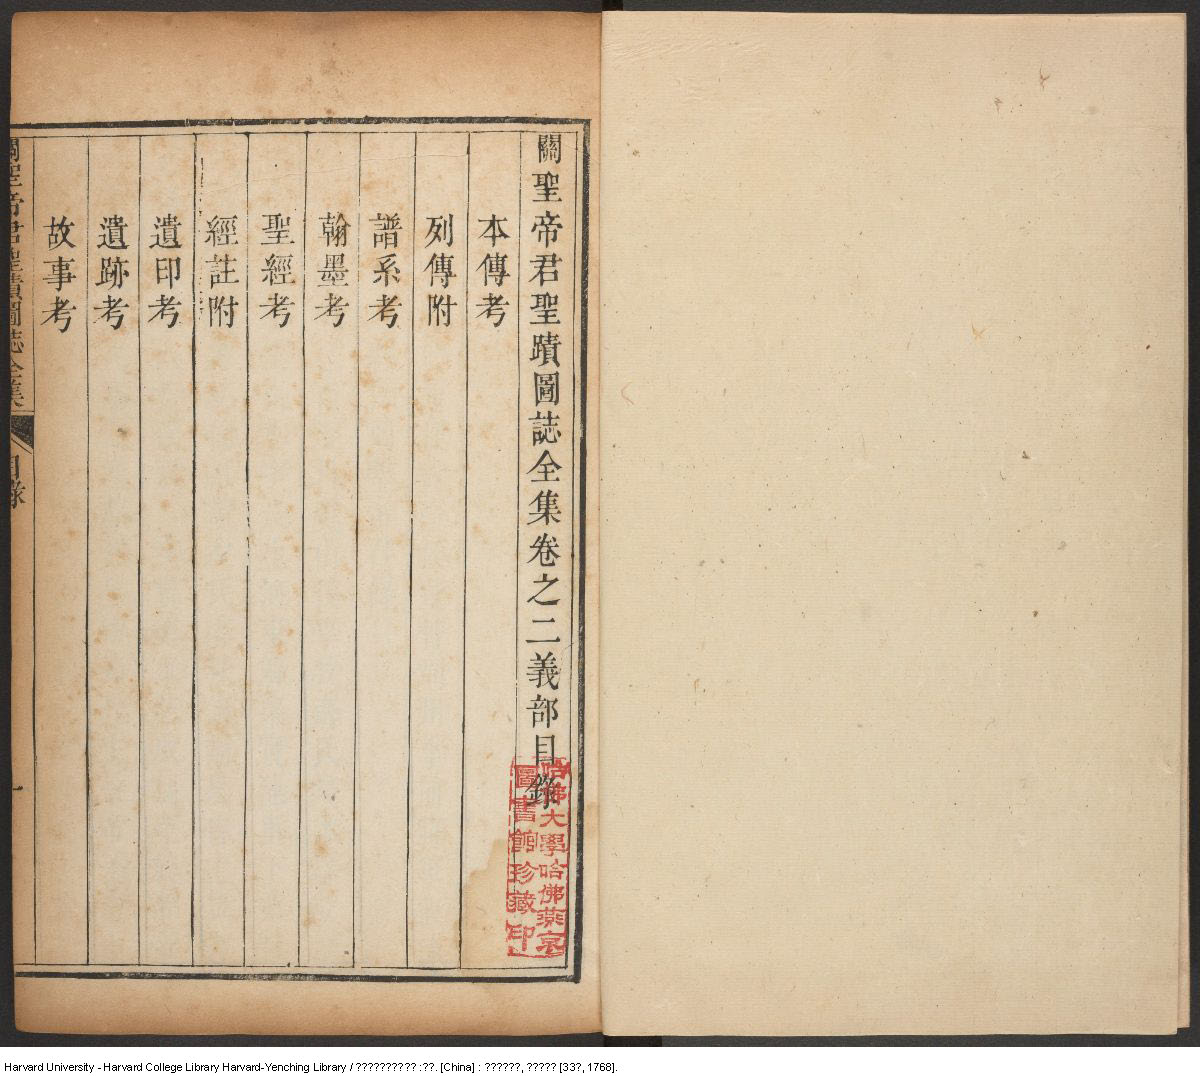 關聖帝君聖蹟圖誌全集卷之二義部目錄
本傳考
列傳附
譜系考
翰墨考
聖經考
經註附
遺印考
遺跡考
故事考
關聖帝君聖蹟圖誌全集 目錄 一
哈佛大學哈佛燕京
圖書館珍藏印
Harvard University - Harvard College Library Harvard-Yenching Library / ?????????? :??. [China] : ??????, ????? [33?, 1768].